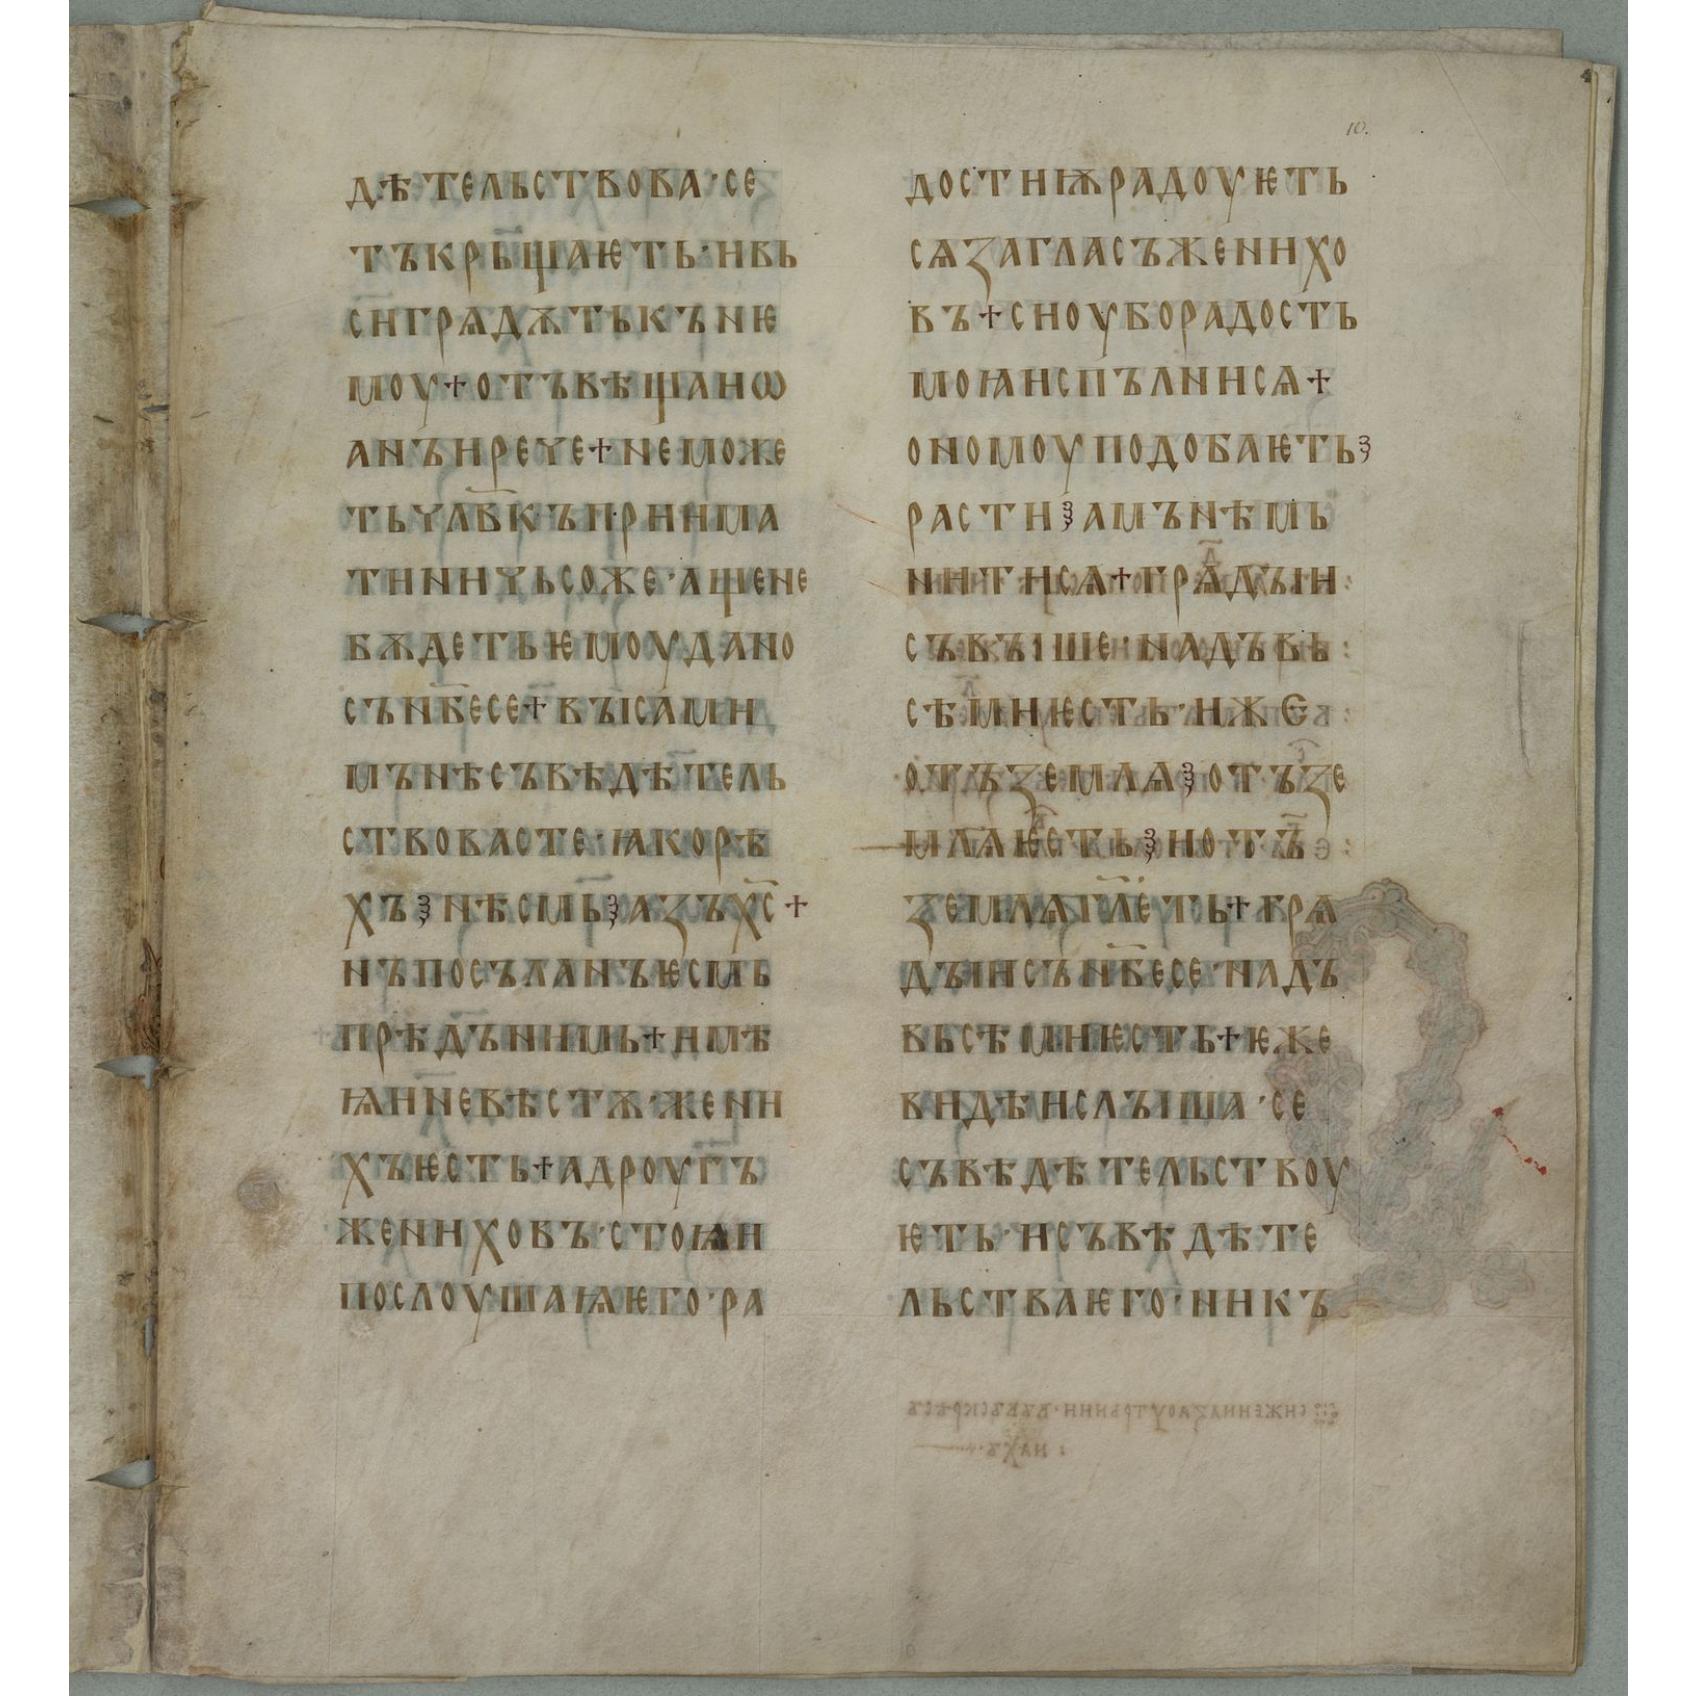 10.
дѣтельствова · се
тъкрьщаѥть · ивь
сигрѧдѫтькънѥ
моу+отъвѣщаиѡ
анъирече+неможе
тьчл҃вкъприима
тиничьсоже · ащене
бѫдетьѥмоудано
сън҃бесе+въісами
мънѣсъвѣдѣтель
ствовасте · ꙗкорѣ
хъꙁнѣсмьꙁазъх҃с+
нъпосъланъѥсмь
прѣдънимь+имѣ
ѩиневѣстѫ · жени
хъѥсть+адроугъ
женихоъвъ · стоꙗи
послоушаѩѥго · ра
достиѭрадоуѥть
сѧзагласъженихо
въ+сиоуборадость
моꙗиспълнисѧ+
ономоуподобаѥтьꙁ
растиꙁамънѣмь
нитисѧ+грѧдъіи
съвъіше · надъвь
сѣмиѥсть · иже
отъземлѧꙁотъзе
млѧѥстьꙁиотъ
землѧг҃леть+грѧ
дъіисън҃бесе · надъ
вьсѣмиѥсть+ѥже
видѣислъіша · се
съвѣдѣтельствоу
ѥть · исъвѣдѣте
льстваѥго · никъ